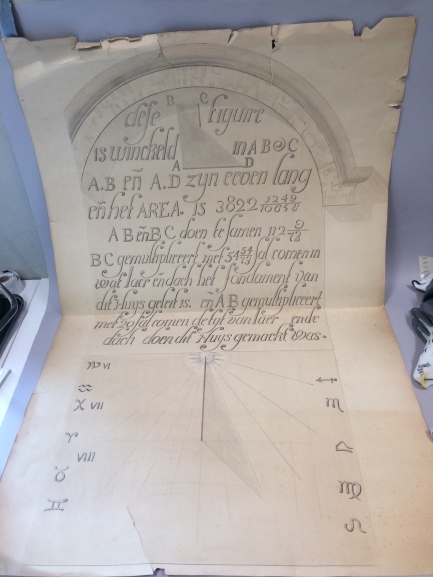 dese B C figure
is winckeld in A B & C
A D
A.B eñ A.D zyn eeven lang
eñ het AREA. IS 3822
A B eñ B C doen te samen 112
B C gemultipliceert met 54 54/73 sal comen in
wat Iaer eñ dach het fondament van
dit Huys geleit is. eñ A B gemultipliceert
met 20 sal comen de tyt van Iaer ende
dach doen dit Huys gemackt was.
♑ VI ♐
♒ ♏
♓ VII
♈ ♎
VIII
♉ ♍
♊ ♌